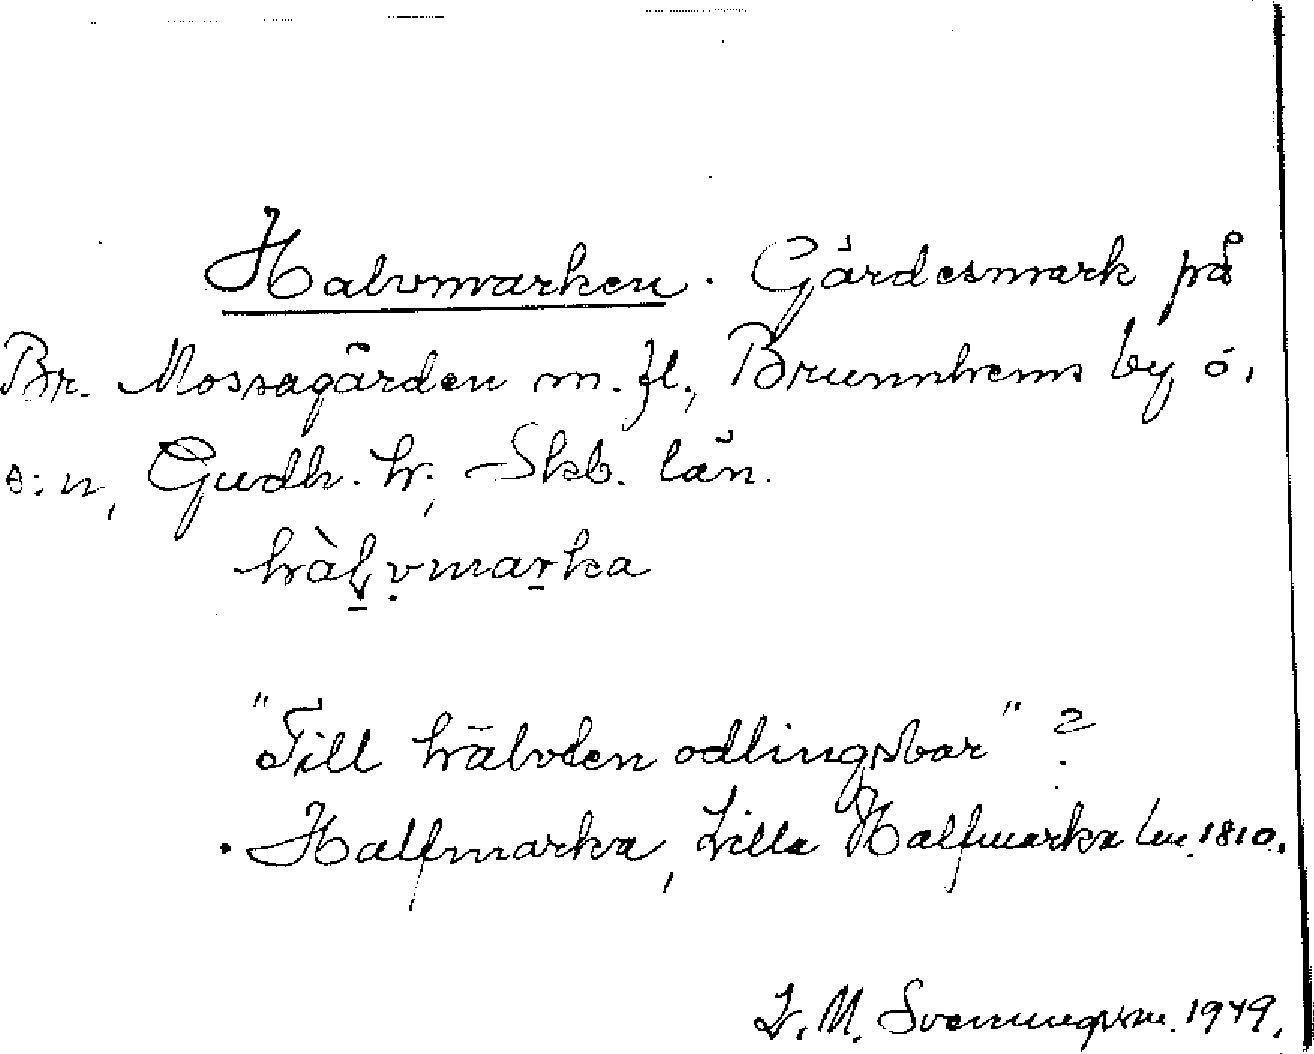 Halvmarken. Gärdesmark på
Br. Mossagården m. fl., Brunnhems by o.
s:n, Gudh. h., Skb. län.
hàlvmarka
"Till hälvten odlingsbar"?
Halfmarka, Lilla Halfmarka lm. 1810.
L. M. Svenungsson. 1949.